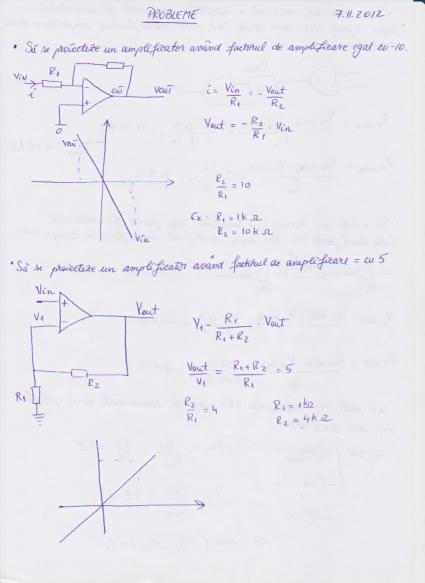 PROBLEME
7.11.2012
• Să se proiecteze un amplificator având factorul de amplificare egal cu -10.
VIN R1
i
- OUT VOUT
+
0
i = Vin/R1 = - Vout/R2
Vout = - R2/R1 · Vin
Vout
Vin
R2/R1 = 10
Ex: R1 = 1kΩ
R2 = 10kΩ
• Să se proiecteze un amplificator având factorul de amplificare = cu 5
Vin
+ Vout
V1 -
R2
R1
V1 - R1/(R1+R2) · Vout
Vout/V1 = (R1+R2)/R1 = 5
R2/R1 = 4
R1 = 1kΩ
R2 = 4kΩ